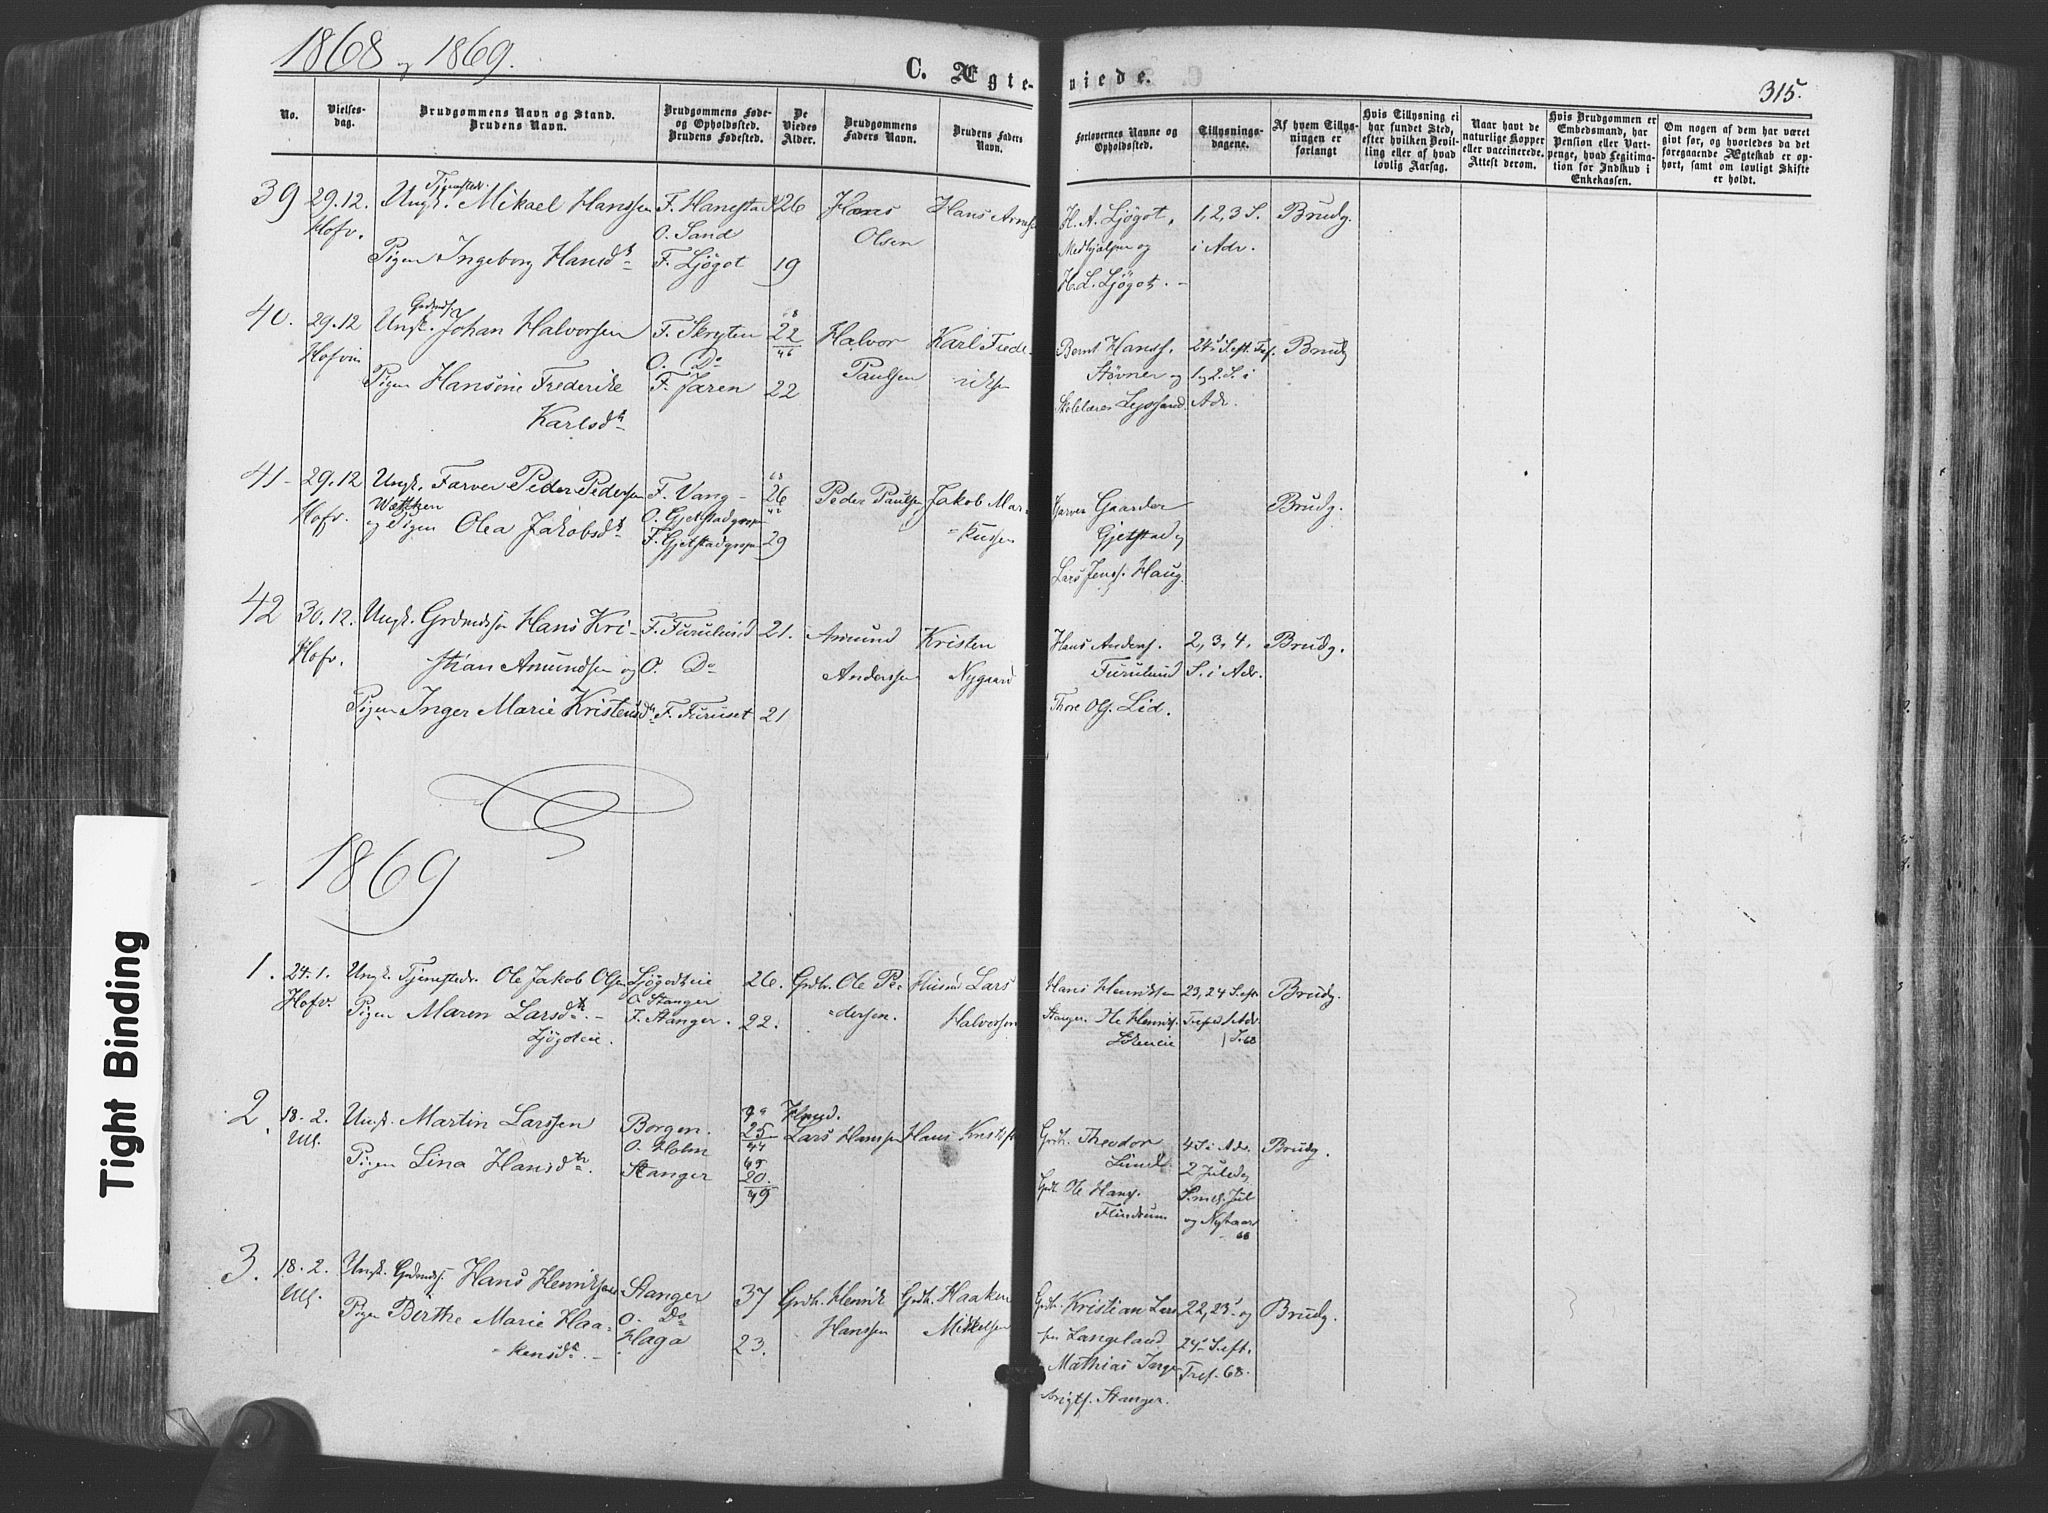 1868 og 1869.
C. Ægteviede.
315.
No.
Vielsesdag.
Brudgommens Navn og Stand.
Brudens Navn.
Brudgommens Føde-
og Opholdssted.
Brudens Fødested.
De
Viedes
Alder.
Brudgommens
Faders Navn.
Brudens Faders
Navn.
Forlovernes Navne og
Opholdssted.
Tillysnings-
dagene.
Af hvem Tillys-
ningen er
forlangt
Hvis Tillysning ei
har fundet Sted,
efter hvilken Bevil-
ling eller af hvad
lovlig Aarsag.
Naar havt de
naturlige Kopper
eller vaccinerede.
Attest derom.
Hvis Brudgommen er
Embedsmand, har
Pension eller Vart-
penge, hvad Legitima-
tion for Indskud i
Enkekassen.
Om nogen af dem har været
gift før, og hvorledes da det
foregaaende Ægteskab er op-
hørt, samt om lovligt Skifte
er holdt.
39 29.12. Hofv.
Tjenestedr.
Ungk. Mikael Hanssen
Pigen Ingeborg Hansd.
F. Hanestad
O. Sand
F. Ljøgot
26
19
Hans
Olsen
Hans Arnes
H. A. Ljøgot,
Medhjælper og
H. L. Ljøgot. -
1, 2, 3 S.
i Adv.
Brudg.
40. 29.12 Hofvin
Ungk. Johan Halvorsen
Pigen Hansine Frederike
Karlsd.
F. Skryten
O. Do
F. Jaren
22
46
22
Halvor
Paulsen
Karl Frede-
riksen
Bernt Hanss.
Støvner og
24 S. eft. Tref.
1 og 2. S. i
Adv.
Brudg
41- 29.12 Hofv.
Ungk. Farver Peder Pedersen
og Pigen Olea Jakobsd.
F. Vang -
O. Gjetstad
F. Gjetstad
26
42
29
Peder Paulsen
Jakob Mar-
kussen
Farver Gaarder
Gjetstad og
Lars Jenss. Haug.
Brudg.
42 30.12. Hofv.
Ungk. Grdmdssøn Hans Kri-
stian Amundsen og
Pigen Inger Marie Kristensd.
F. Furulund
O. Do
F. Furuset
21.
21
Amund
Anderssen
Kristen
Nygaard
Hans Anderss.
Furulund
Thore Ols. Lid.
2, 3, 4,
S. i Adv.
Brudg.
1869
1. 24.1. Hofv.
Ungk. Tjenestedr. Ole Jakob Olsen
Pigen Maren Larsd. -
Ljøgoteie.
Ljøgodteie
O. Stanger
F. Stanger.
26.
22.
Grdbr. Ole Pe-
dersen.
Husmd Lars
Halvorsen
Hans Henriksen
Stanger.
23, 24 S. eft.
Tref. og 1 Adv.
S. 68
Brudg.
2. 18.2. Ull.
Ungk. Martin Larssen
Pigen Lina Hansd.
Borgen.
O. Holm
Stanger
25
44
20.
49
Husmd.
Lars Hanssen
Hans Kristofs
Grdbr. Theodor
Lund.
Grdb. Ole Hanss.
Flindrum
4 S. i Adv.
2 Juledg
S. mel. Jul
og Nytaar
68
Brudg.
3. 18.2. Ull.
Ungk. Grdmds. Hans Henriksen
Pigen Berthe Marie Haa-
kensd. -
Stanger
O. Do
Haga
37
23.
Grdbr. Henrik
Hanssen
Grdbr. Haaken
Mikkelsen
Grdbr. Kristian Lars
sen Langeland
Mathias Inge-
brigts. Stanger.
22, 23 og
24 S. eft.
Tref. 68.
Brudg.
Tight Binding